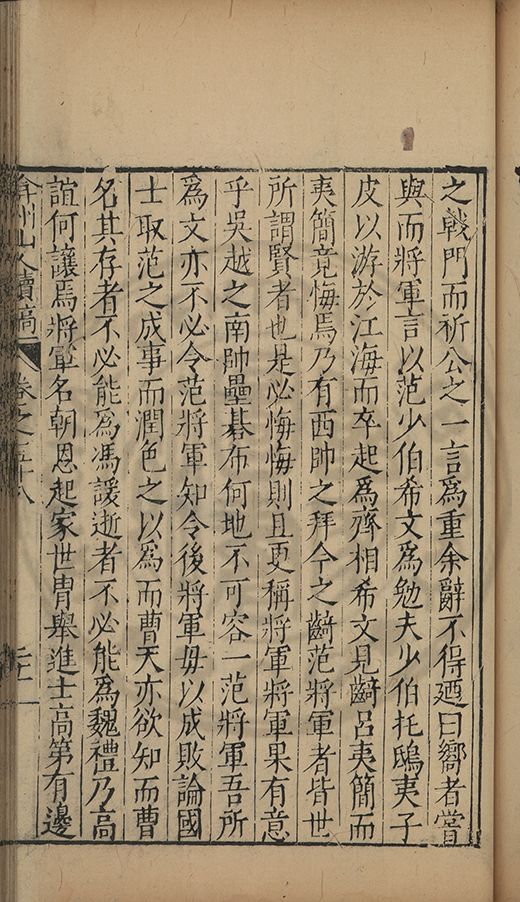 之戟門而祈公之一言為重余辭不得廼曰嚮者嘗
與而將軍言以范少伯希文為勉夫少伯托鴟夷子
皮以游於江海而卒起為齊相希文見齮呂夷簡而
夷簡竟悔焉乃有西帥之拜今之齮范將軍者皆世
所謂賢者也是必悔悔則且更稱將軍將軍果有意
乎吳越之南帥壘碁布何地不可容一范將軍吾所
為文亦不必令范將軍知令後將軍毋以成敗論國
士取范之成事而潤色之以為而曹天亦欲知而曹
名其存者不必能為馮諼逝者不必能為魏禮乃高
誼何讓焉將軍名朝恩起家世胄舉進士高第有邊
弇州山人續稿 卷之五十八